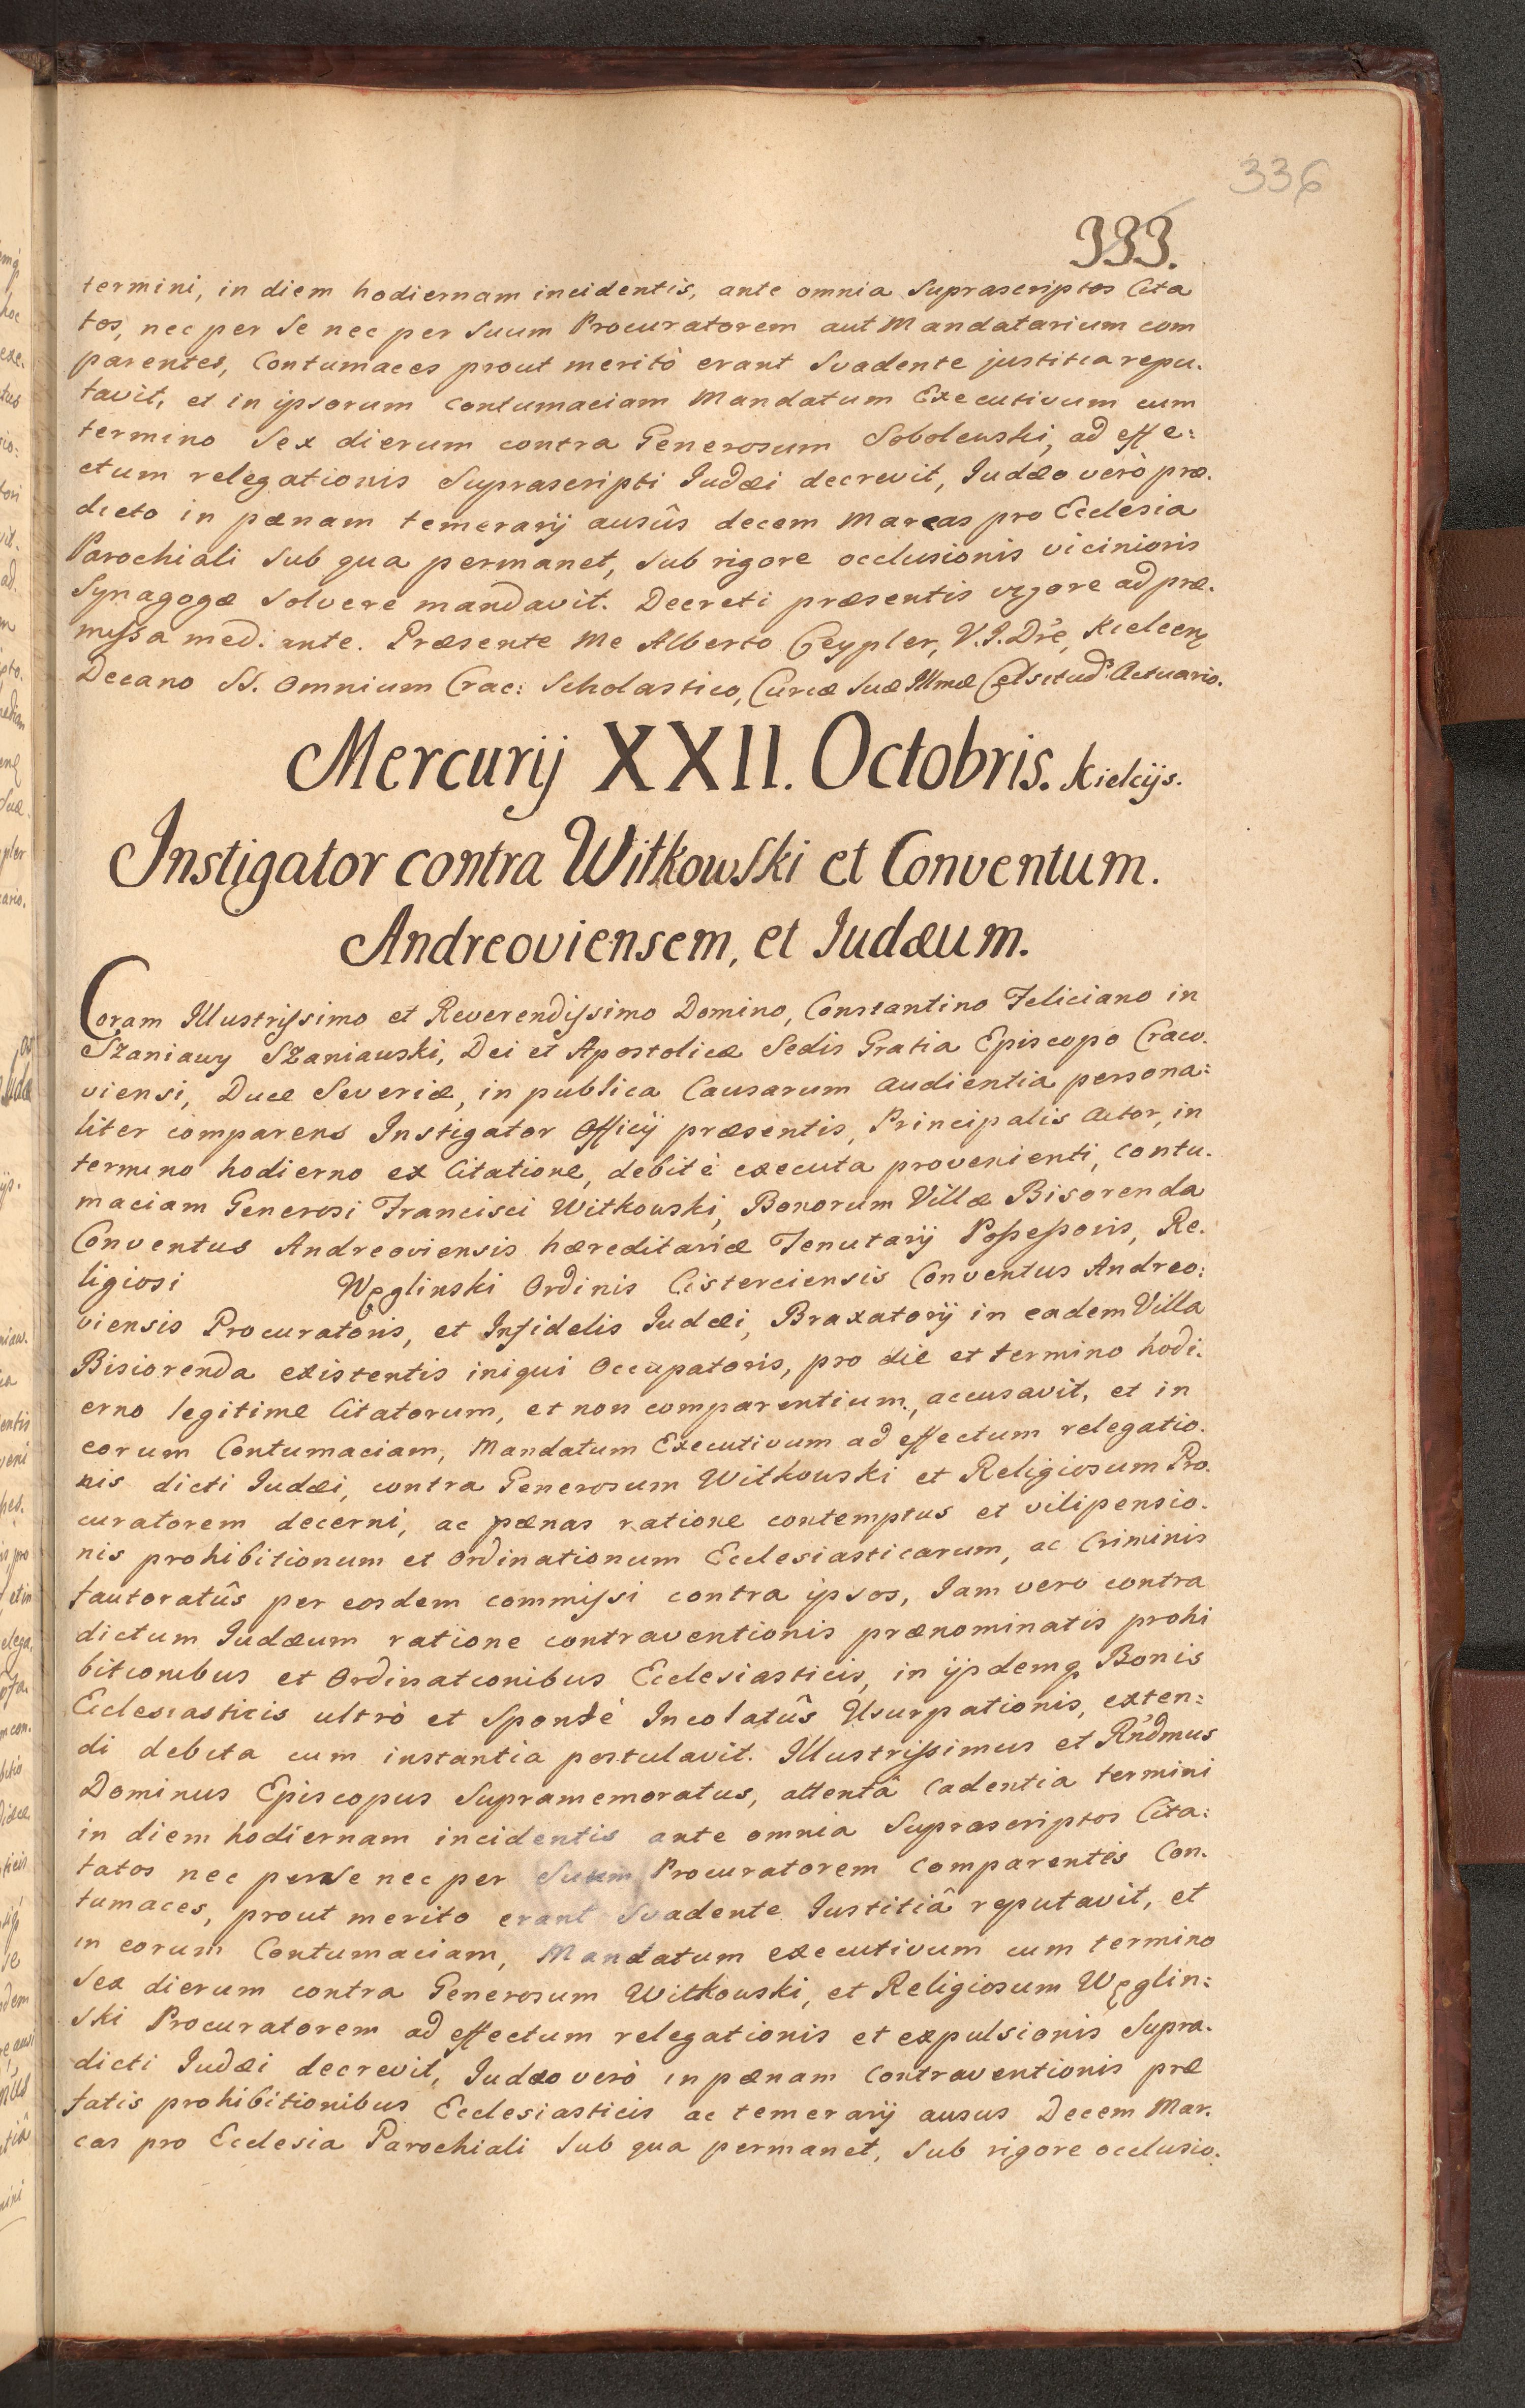 336
333.
termini, in diem hodiernam incidentis, ante omnia Suprascriptos Cita
tos, nec per Se nec per Suum Procuratorem aut Mandatarium com
parentes, Contumaces prout meritò erant Svadente justitia repu.
tavit, et in ipsorum contumaciam Mandatum Executivum cum
termino Sex dierum contra Generosum Sobolewski, ad effe:
ctum relegationis Suprascripti Iudæi decrevit, Iudæo verò præ.
dicto in pænam temerarij ausûs decem Marcas pro Ecclesia
Parochiali Sub qua permanet, Sub rigore occlusionis vicinioris
Synagogæ Solvere mandavit. Decreti præsentis vigore ad præ.
missa med. ante. Præsente Me Alberto Geypler, V.I.Dre, Kielcen
Decano SS. Omnium Crac: Scholastico, Curiæ Suæ Illmæ Celsitud Actuario.
Mercurij XXII. Octobris. Kielcijs.
Instigator contra Witkowski et Conventum.
Andreoviensem, et Iudæum.
Coram Illustrissimo et Reverendissimo Domino, Constantino Feliciano in
Szaniawy Szaniawski, Dei et Apostolicæ Sedis Gratia Episcopo Craco.
viensi, Duce Severiæ, in publica Causarum audientia persona:
liter comparens Instigator Officij præsentis, Principalis Actor, in
termino hodierno ex Citatione, debitè executa provenienti, contu.
maciam Generosi Francisci Witkowski, Bonorum Villæ Bisorenda
Conventus Andreoviensis hæreditariæ Tenutarij Possessoris, Re.
ligiosi Węglinski Ordinis Cisterciensis Conventus Andreo:
viensis Procuratoris, et Infidelis Iudæi, Braxatorij in eadem Villa
Bisiorenda existentis iniqui Occupatoris, pro die et termino hodi.
erno legitime Citatorum, et non comparentium, accusavit, et in
eorum Contumaciam, Mandatum Executivum ad effectum relegatio.
nis dicti Iudæi, contra Generosum Witkowski et Religiosum Pro.
curatorem decerni, ac pænas ratione contemptus et vilipensio.
nis prohibitionum et Ordinationum Ecclesiasticarum, ac Criminis
fautoratûs per eosdem commissi contra ipsos, Iam vero contra
dictum Iudæum ratione contraventionis prænominatis prohi
bitionibus et Ordinationibus Ecclesiasticis, in ijsdemq Bonis
Ecclesiasticis ultrò et Spontè Incolatûs Usurpationis, exten:
di debita cum instantia postulavit. Illustrissimus et Rndmus
Dominus Episcopus Supramemoratus, attentâ Cadentia termini
in diem hodiernam incidentis ante omnia Suprascriptos Cita:
tatos nec per Se nec per Suum Procuratorem comparentes Con.
tumaces, prout merito erant Svadente Iustitiâ reputavit, et
in eorum Contumaciam, Mandatum executivum cum termino
Sex dierum contra Generosum Witkowski, et Religiosum Węglin:
ski Procuratorem ad effectum relegationis et expulsionis Supra.
dicti Iudæi decrevit, Iudæo verò in pænam Contraventionis præ
fatis prohibitionibus Ecclesiasticis ac temerarij ausus Decem Mar.
cas pro Ecclesia Parochiali Sub qua permanet, Sub rigore occlusio.